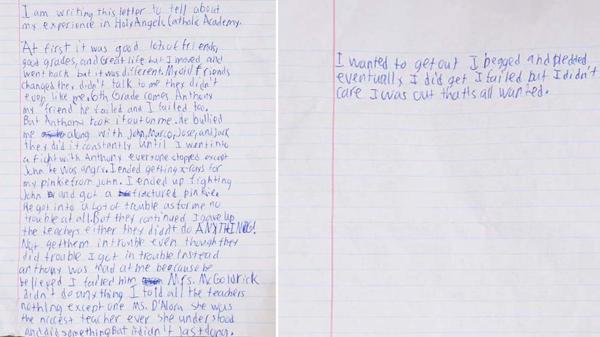 I am writing this letter to tell about
my experience in Holy Angels Catholic Academy.
At first it was good lots of friends,
good grades, and Great life but I moved and
went back but it was different. My old friends
changed they didn't talk to me they didn't
even like me. 6th Grade comes Anthony
my "friend" he failed and I failed too.
But Anthony took it out on me he bullied
me along with John, Marco, Jose, and Jack
they did it constantly until I went into
a fight with Anthony everyone stopped except
John he was angry. I ended getting x-rays for
my pinkie from John. I ended up fighting
John and got a fractured pinkie.
He got into a lot of trouble as for me no
trouble at all. But they continued I gave up
the teachers either they didn't do ANYTHING!
Not get them in trouble even though they
did trouble I got in trouble instead
anthony was mad at me because he
believed I failed him Mrs. McGoldrick
didn't do anything I told all the teachers
nothing except one Ms. D'Alora she was
the nicest teacher ever she understood
and did something But it didn't last long.
I wanted to get out I begged and pledded
eventually I did get I failed but I didn't
care I was out that's all wanted.